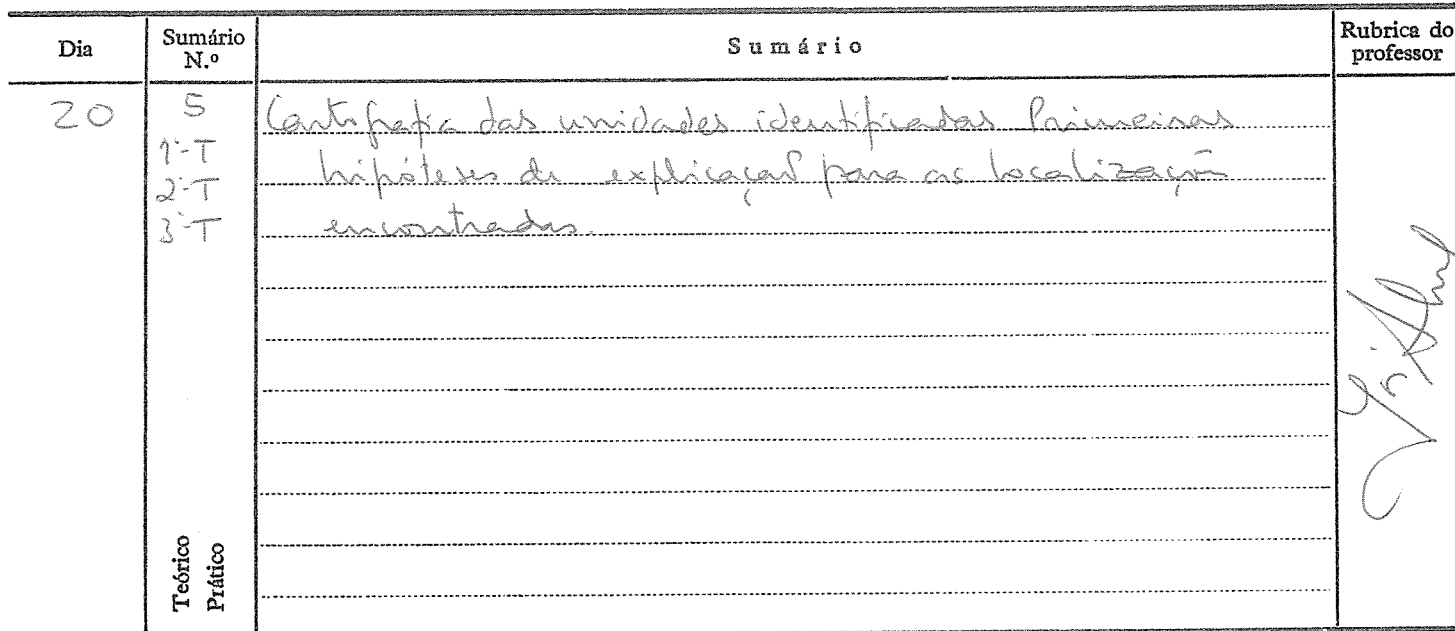 Dia
Sumário N.º
Sumário
Rubrica do professor
20
5
1ª-T
2ª-T
3ª-T
Cartografia das unidades identificadas Primeiras
hipóteses de explicação para as localização
encontradas.
Teórico
Prático